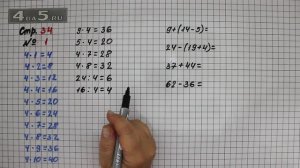 4na5.ru
Стр. 34
№ 1
4·1=4
4·2=8
4·3=12
4·4=16
4·5=20
4·6=24
4·7=28
4·8=32
4·9=36
4·10=40
9·4=36
5·4=20
4·7=28
4·8=32
24:4=6
16:4=4
9+(14-5)=
24-(19+4)=
37+44=
62-36=